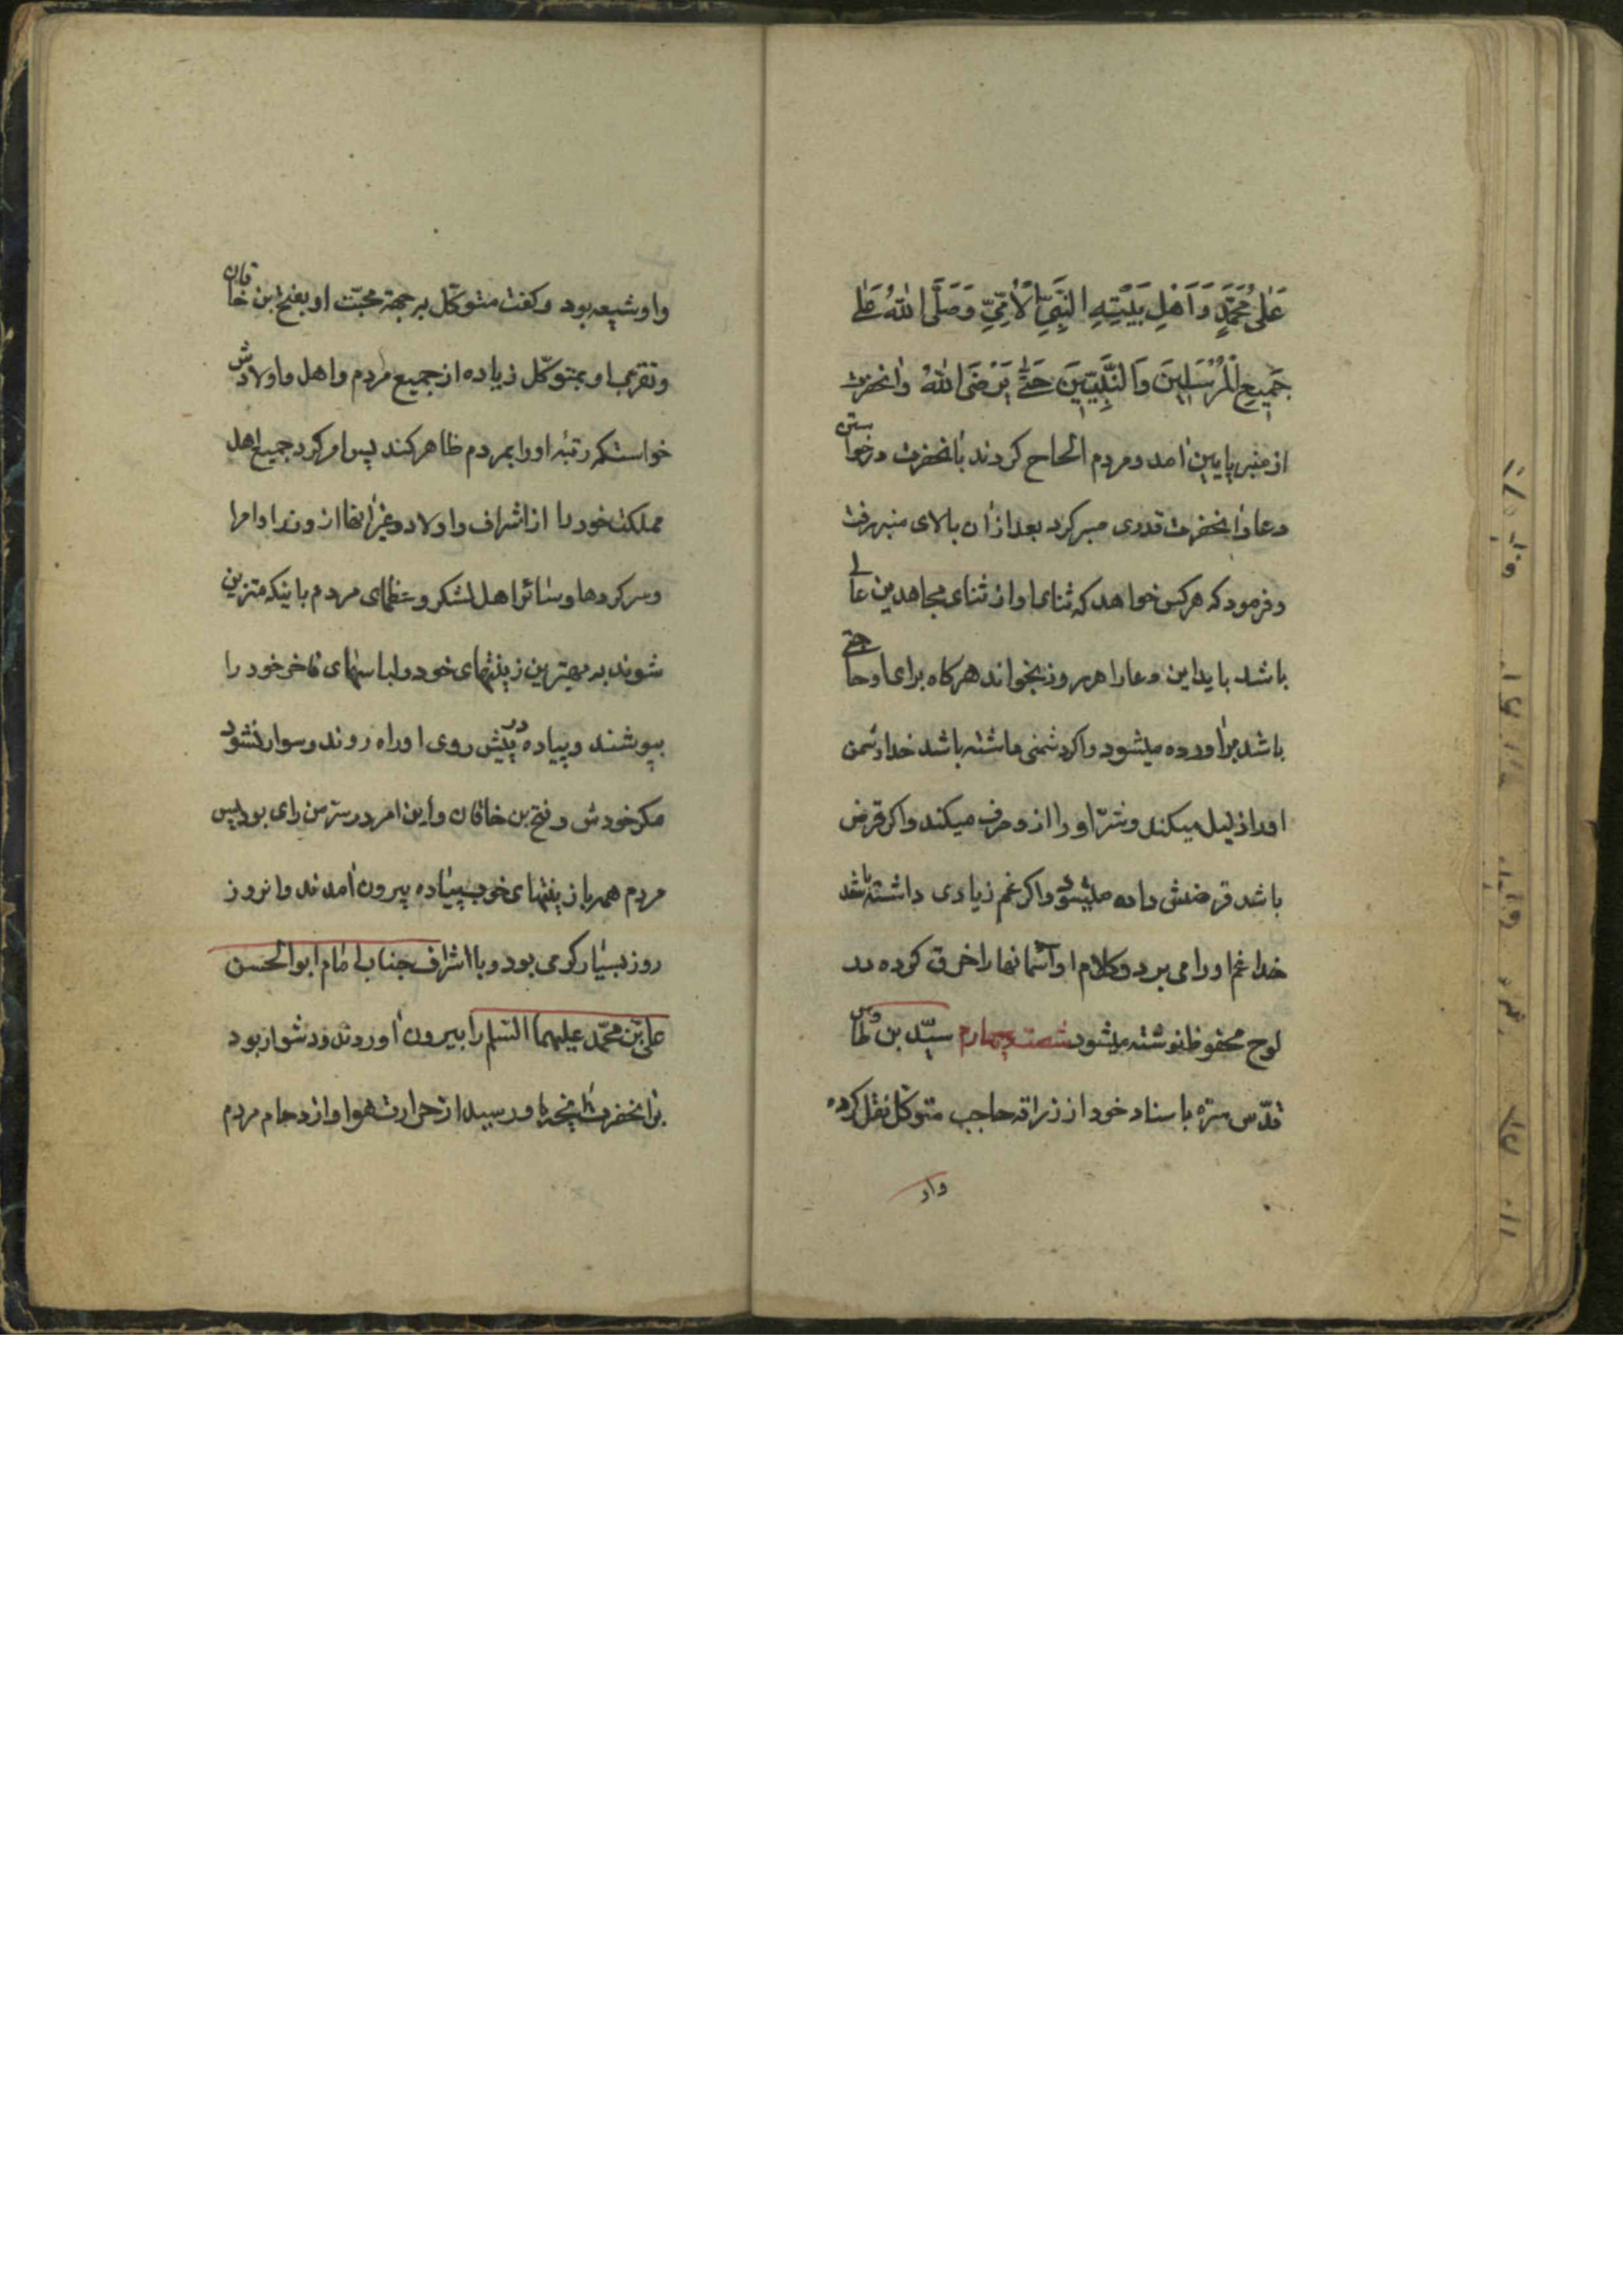 عَلٰی مُحَمَّدٍ وَ اَهْلِ بَیْتِهِ النَّبِیِّ الْاُمِّیِّ وَ صَلَّی اللّٰهُ عَلٰی
جَمِیعِ الْمُرْسَلِینَ وَ النَّبِیِّینَ حَتّٰی یَرْضَی اللّٰهُ وانحضرت
از منبر پایین امد و مردم الحاح کردند بانحضرت درخواستن
دعا وانحضرت قدری صبر کرد بعد ازان بالای منبر رفت
و فرمود که هرکس خواهد که ثنای او از ثنای مجاهدین عالی
باشد باید این دعا را هر روز بخواند هرکاه برای او حاجتی
باشد براورده میشود و اکر دشمنی داشته باشد خدا دشمن
او را ذلیل میکند و شرّ او را از و حرف میکند و اکر قرض
باشد قرضش داده میشود و اکر غم زیادی داشته باشد
خدا غم او را می برد و کلام او آسمانها را خرق کرده در
لوح محفوظ نوشته میشود شصت چهارم سیّد بن طاوس
قدّس سرّه باسناد خود از زرافه حاجب متوکل نقل کرده
واو
واو شیعه بود و کفت متوکّل بر جهة محبّت او بفتح ابن خاقان
و تقرب او بمتوکّل زیاده از جمیع مردم و اهل و اولادش
خواست که رتبه او را بمردم ظاهر کند پس امر کرد جمیع اهل
مملکت خود را از اشراف و اولاد و غیر انها از وزرا و امرا
و سرکردها و سائر اهل لشکر و عظمای مردم باینکه متزین
شوند به بهترین زینتهای خود و لباسهای فاخر خود را
بپوشند و پیاده در پیش روی او راه روند و سوار نشود
مکر خودش و فتح بن خاقان و این امر در سرّ من رای بود پس
مردم همه با زینتهای خوب پیاده بیرون امدند وانروز
روز بسیار کرمی بود و با اشراف جناب امام ابو الحسن
علی بن محمّد علیهما السّلام را بیرون اوردند و دشوار بود
بر انحضرت انچه باو رسید از حرارت هوا و ازدحام مردم